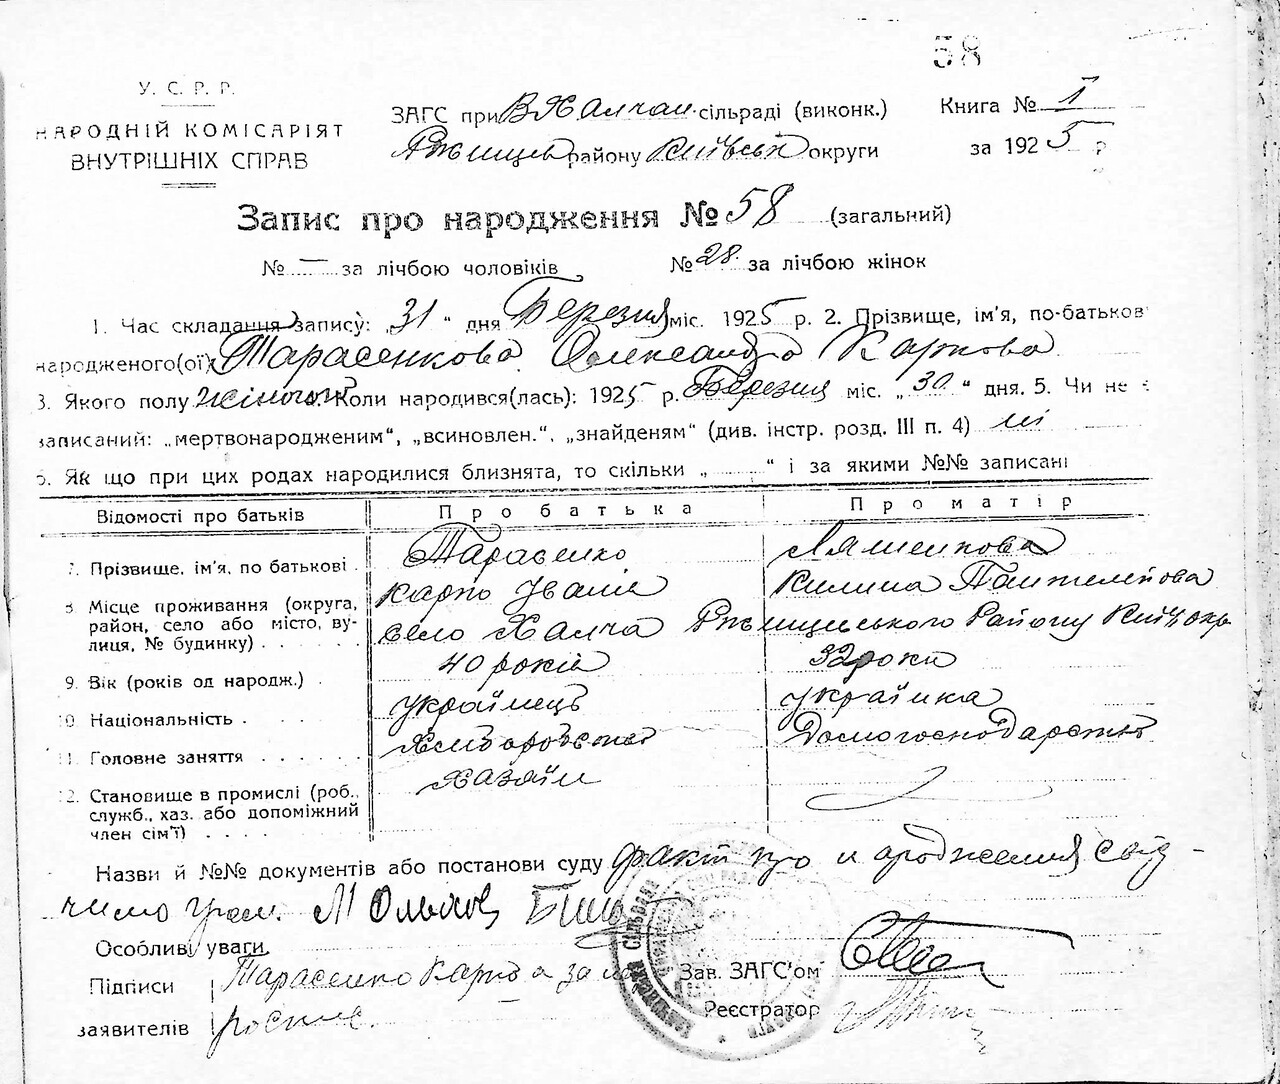 58
У. С. Р. Р.
НАРОДНІЙ КОМІСАРІЯТ
ВНУТРІШНІХ СПРАВ
ЗАГС при В Халчан сільраді (виконк.)
Ржищев району Київськ округи
Книга № I
за 1925 р
Запис про народження № 58 (загальний)
№ — за лічбою чоловіків № 28 за лічбою жінок
1. Час складання запису: „31“ дня Березня міс. 1925 р. 2. Прізвище, ім'я, по-батьков
народженого(ої) Тарасенкова Олександра Карпова
3. Якого полу жіночої 4. Коли народився(лась): 1925 р. Березня міс. „30“ дня. 5. Чи не є
записаний: „мертвонародженим“, „всиновлен.“, „знайденям“ (див. інстр. розд. III п. 4) ні
6. Як що при цих родах народилися близнята, то скільки „ “ і за якими №№ записані
Відомості про батьків Про батька Про матір
7. Прізвище, ім'я, по батькові Тарасенко Карпо Іванів Килина
8. Місце проживання (округа, район, село або місто, вулиця, № будинку) село Халча Ржищівського Району Київ окр
9. Вік (років од народж.) 40 років 32 роки
10. Національність українець українка
11. Головне заняття Домогосподарство
12. Становище в промислі (роб., служб., хаз. або допоміжний член сім'ї) Хазяїн
Назви й №№ документів або постанови суду факт про народження свід-
чимо гром.
Особливі уваги
Підписи Тарасенко Карпо а за
заявителів роспис.
Зав. ЗАГС'ом
Реєстратор